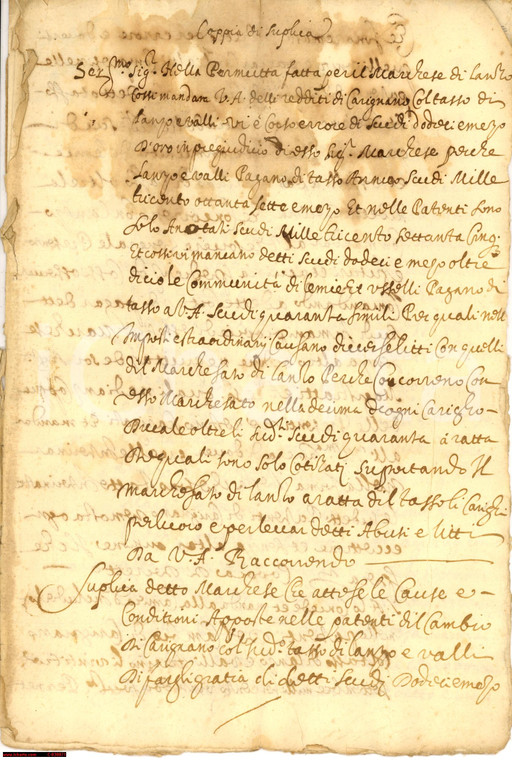 Coppia di Suplica
Ser.mo Sig.r Nella Permutta fatta per il Marchese di Lanzo
Con mandara V.A. delli redditi di Carignano Col tasso di
Lanzo e valli vi è Corso errore di Scudi dodeci e mezo
D'oro in pregiudicio di esso Sig.r Marchese perche
Lanzo e valli Pagano di tasso Annuo Scudi Mille
tricento ottanta sette e mezo Et nelle Patenti sono
Solo Anotati Scudi Mille tricento settanta Cinq.
Et cossi vi mancano detti Scudi dodeci e mezo oltre
di cio le Communità di Lemie et Usselli Pagano di
tasso a V.A. Scudi quaranta simili Per quali nelli
Imposti estraordinarij Causano diverse litti Con quelli
del Marchesato di Lanzo Perche Concorreno Con
esso Marchesato nella decima d'ogni Carigho
Ducale oltre li sud.ti Scudi quaranta a ratta
De quali sono solo Cotizati Suportando Il
marchesato di Lanzo a ratta del tasso li Carighi
per loro e per levar detti Abusi e litti
Da V.A. Raccorrendo
Suplica detto Marchese Che attese le Cause e
Conditioni Apposte nelle patenti del Cambio
Di Carignano Col sud.to tasso di Lanzo e valli
Di fargli gratia di detti Scudi Dodeci e mezo